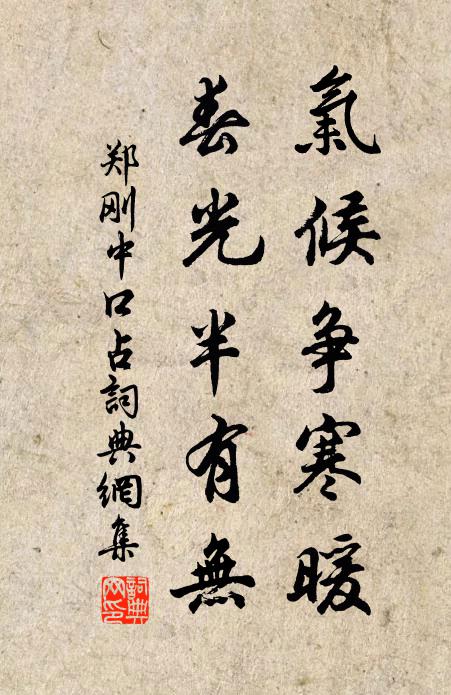 氣候争寒暖
春光半有無
郑刚中口占詞典網集
詞典網印